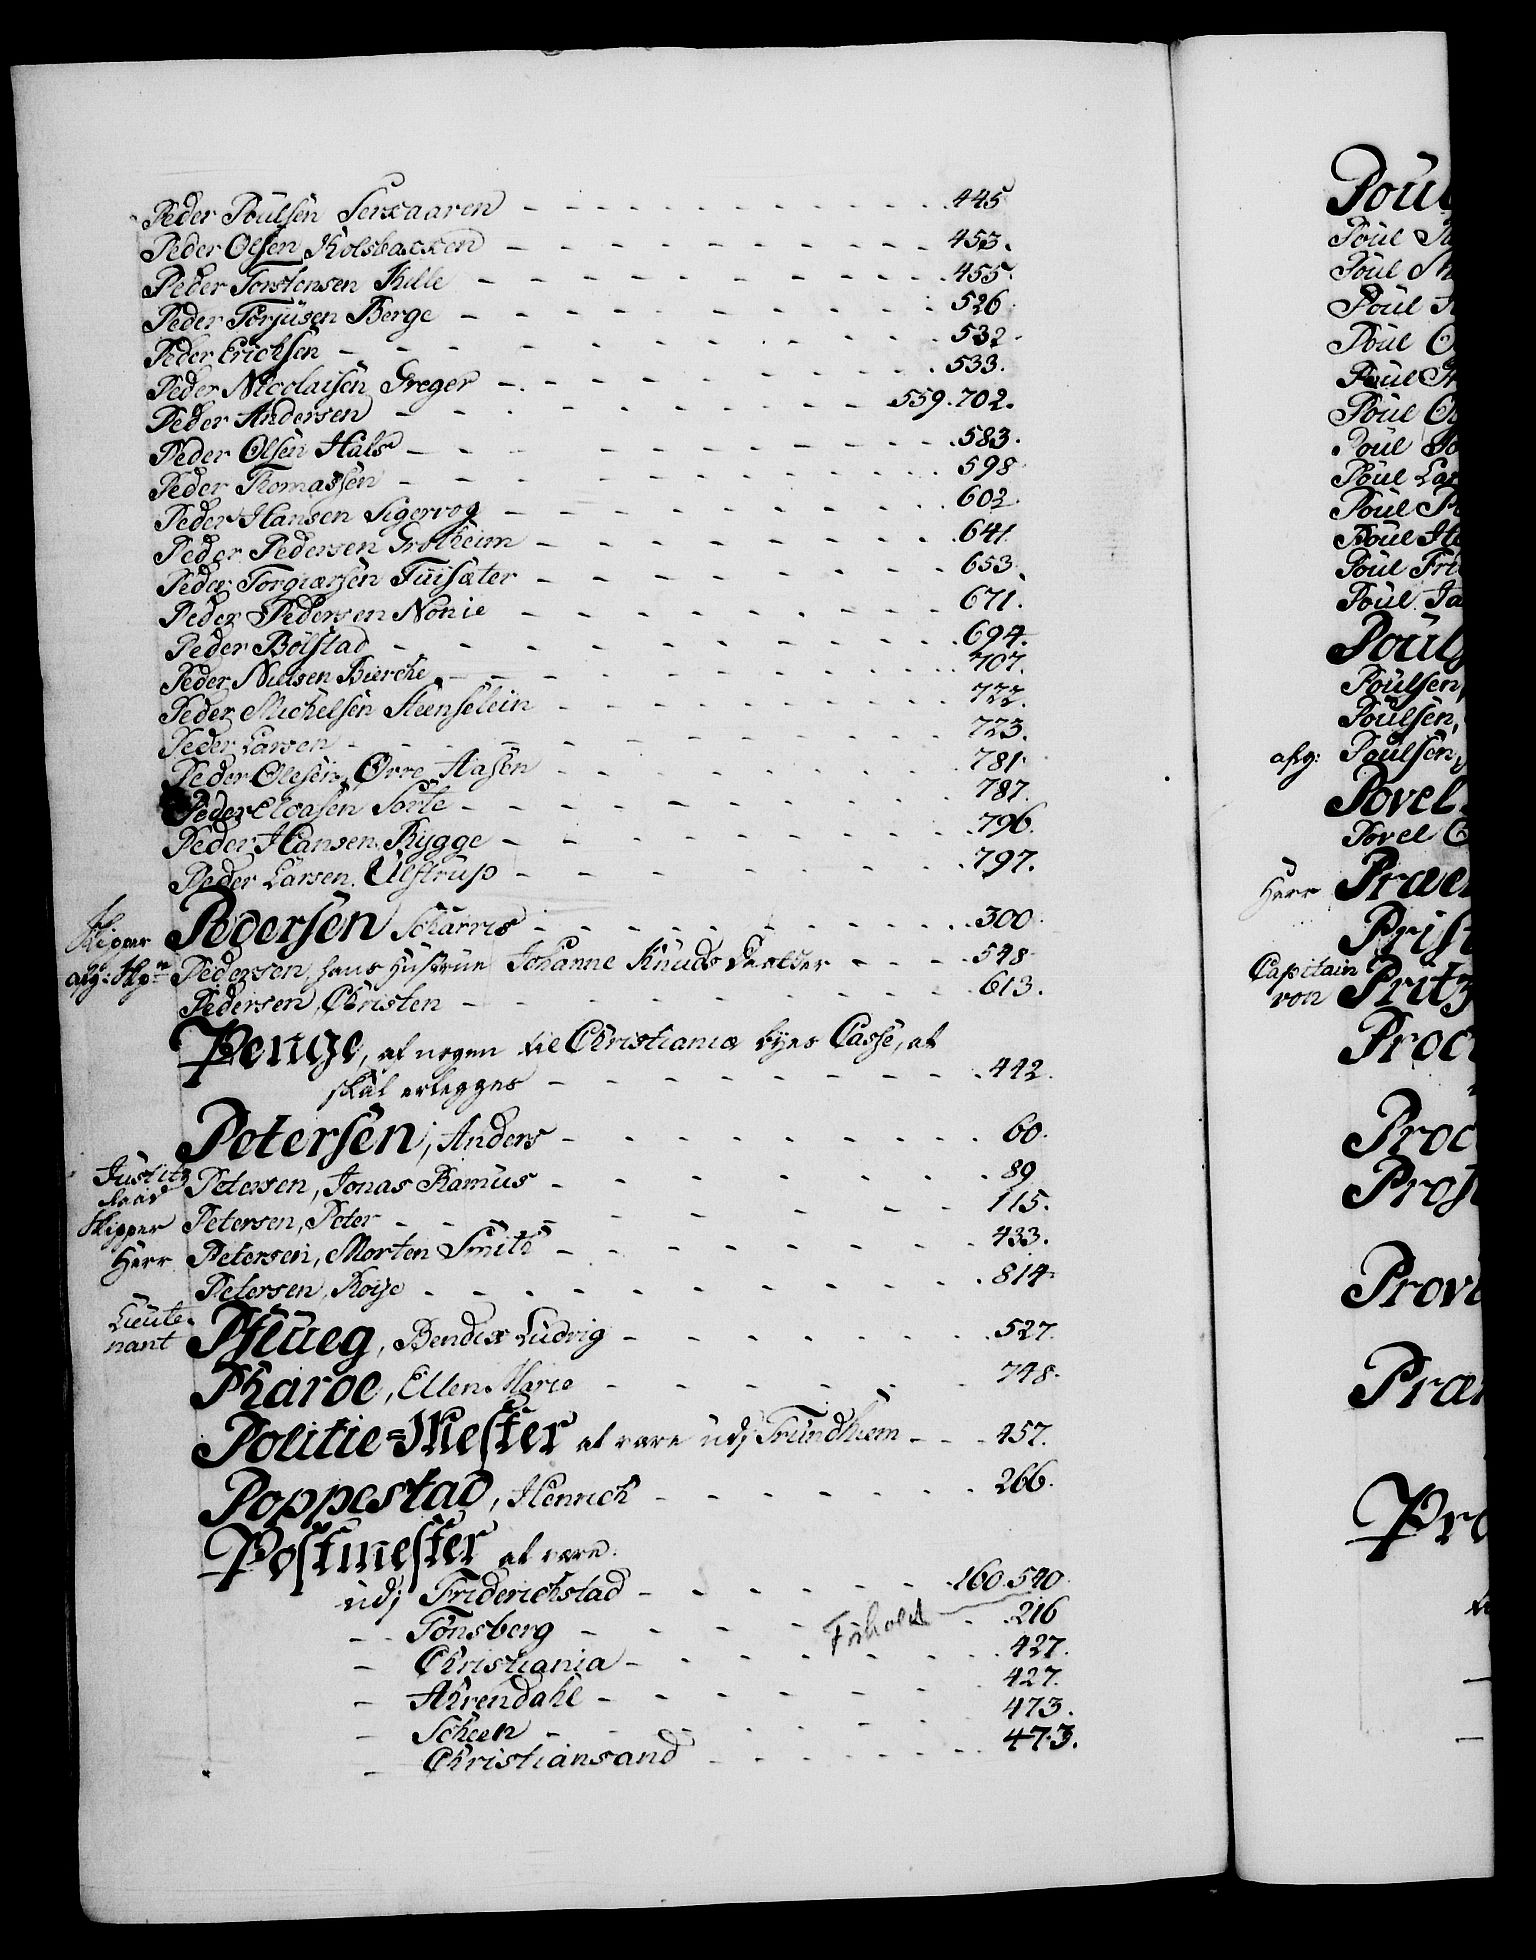 Peder Poulsen Serxaaren - - - - - - - - - - 445
Peder Olsen Kolsbacken - - - - - - - - - - 453.
Peder Torstensen Kelle - - - - - - - - - - 455.
Peder Torjusen Berge - - - - - - - - - - 526.
Peder Erichsen - - - - - - - - - - 532.
Peder Nicolaisen Greger - - - - - - - - - - 533.
Peder Andersen - - - - - - - - - 559.702.
Peder Olsen Hals - - - - - - - - - - 583.
Peder Thomassen - - - - - - - - - - 598.
Peder Hansen Sigervog - - - - - - - - - 602.
Peder Pedersen Grotheim - - - - - - - - 641.
Peder Torgiærsen Tuisæter - - - - - - - - 653.
Peder Pedersen Nonie - - - - - - - - - 671.
Peder Bolstad - - - - - - - - - - 694.
Peder Nielsen Bierche - - - - - - - - - 707.
Peder Michelsen Steenselein - - - - - - - - 722.
Peder Larsen - - - - - - - - - - 723.
Peder Olesen Orre Aasen - - - - - - - - 781.
Peder Eloasen Sorte - - - - - - - - - 787.
Peder Hansen Rygge - - - - - - - - - 796.
Peder Larsen Ulstrup - - - - - - - - 797.
Skipper Pedersen Scharris - - - - - - - - 300.
afg: Skp Pedersen, hans Hustrue Johanne Knuds Daatter - - - 548.
Pedersen, Christen - - - - - - - - - 613.
Penge, af nogen til Christiania byes Casse, at
skal erlegges - - - - - - - - - 442.
Petersen, Anders - - - - - - - - 60.
Justitz Raad Petersen, Jonas Ramus - - - - - - - - 89
Skipper Petersen, Peter - - - - - - - - 115.
Herr Petersen, Morten Smith - - - - - - - - 433.
Petersen, Roije - - - - - - - - - 814.
Lieute-
nant Pflueg, Bendix Ludvig - - - - - - - 527.
Pharoe, Ellen Marie - - - - - - - 748.
Politie-Mester at være udj Trundhiem - - - 457.
Poppestad, Henrich - - - - - - - 266.
Postmester at være
udj Friderichstad - - - - - - 160.540.
- - Tønsberg - - - - - - - 216
Forhold
- Christiania - - - - - - - 427.
- Ahrendahl - - - - - - - 427.
- Scheen - - - - - - - 473.
- Christiansand - - - - - - 473.
Poul
Poul
Poul
Poul
Poul
Poul
Poul
Poul
Poul
Poul
Poul
Poul
Poul
Pouls
Poulsen,
Poulsen,
afg: Poulsen,
Povel
Povel
Herr
Prist
Capitain
von Pritz
Proc
Proc
Provi